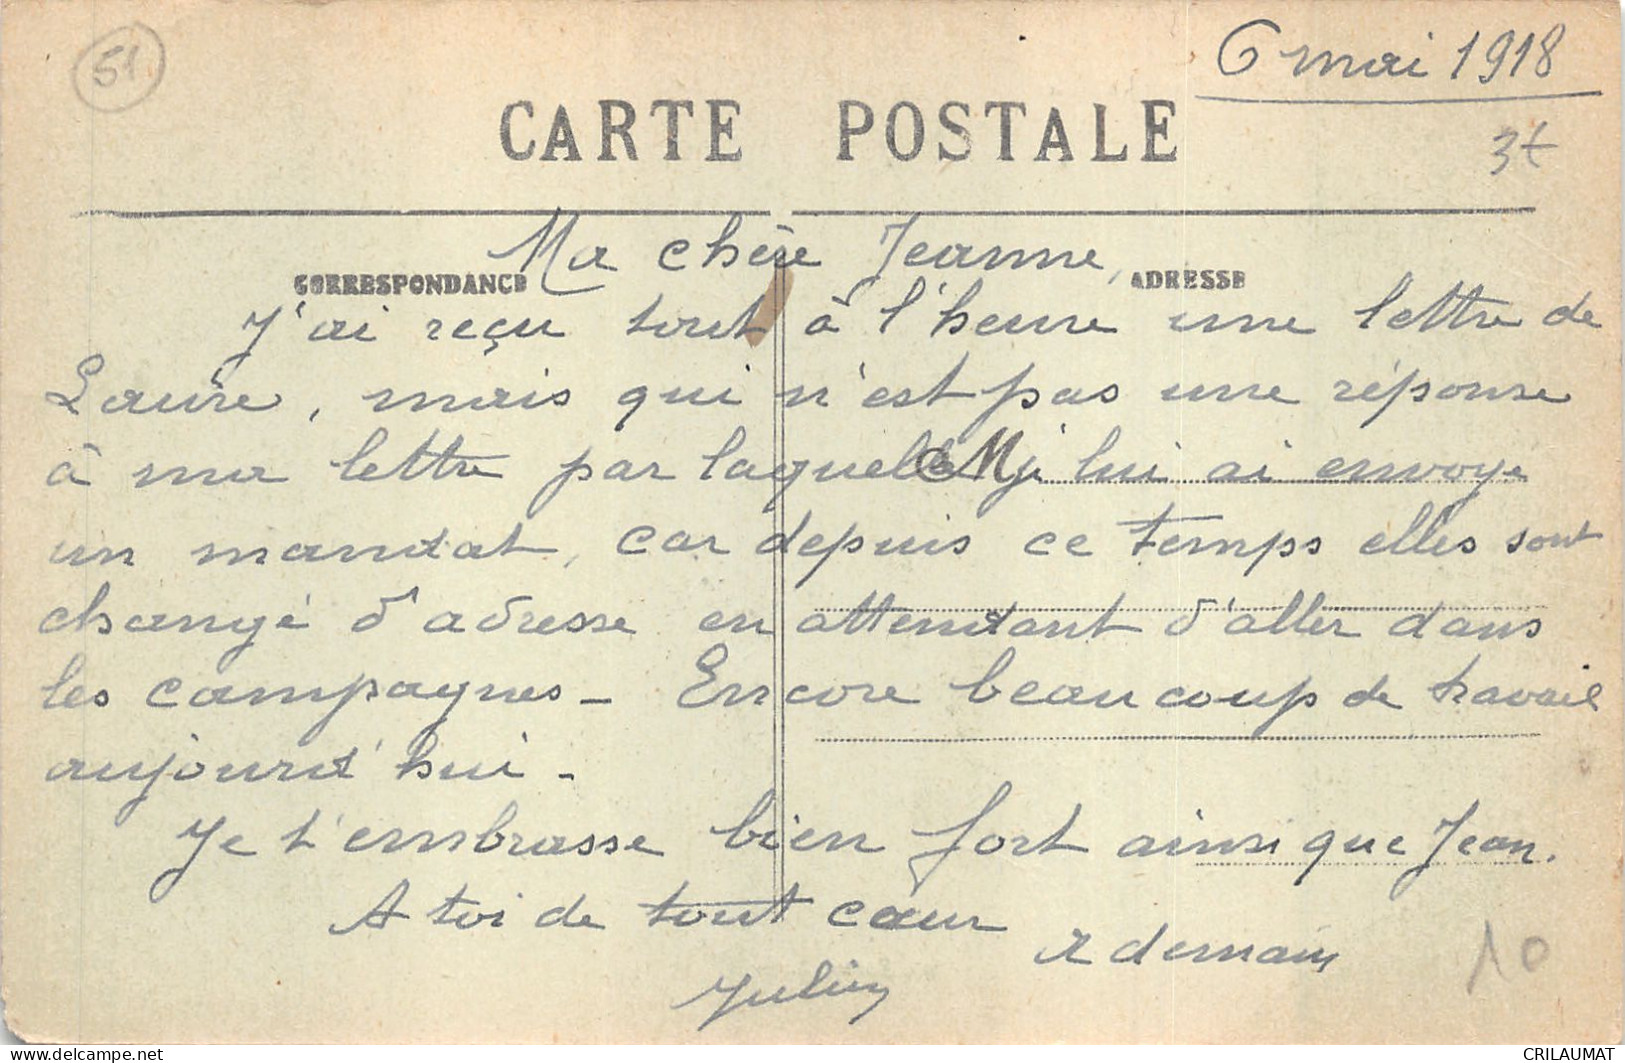 51
6 mai 1918
CARTE POSTALE
3t
Ma chère Jeanne,
CORRESPONDANCE
ADRESSE
J'ai reçu tout à l'heure une lettre de
Laure, mais qui n'est pas une réponse
à ma lettre par laquelle je lui ai envoyé
un mandat, car depuis ce temps elles sont
changé d'adresse en attendant d'aller dans
les campagnes - Encore beaucoup de travail
aujourd'hui -
Je t'embrasse bien fort ainsi que Jean.
A toi de tout cœur
A demain
Julien
10
delcampe.net
CRILAUMAT